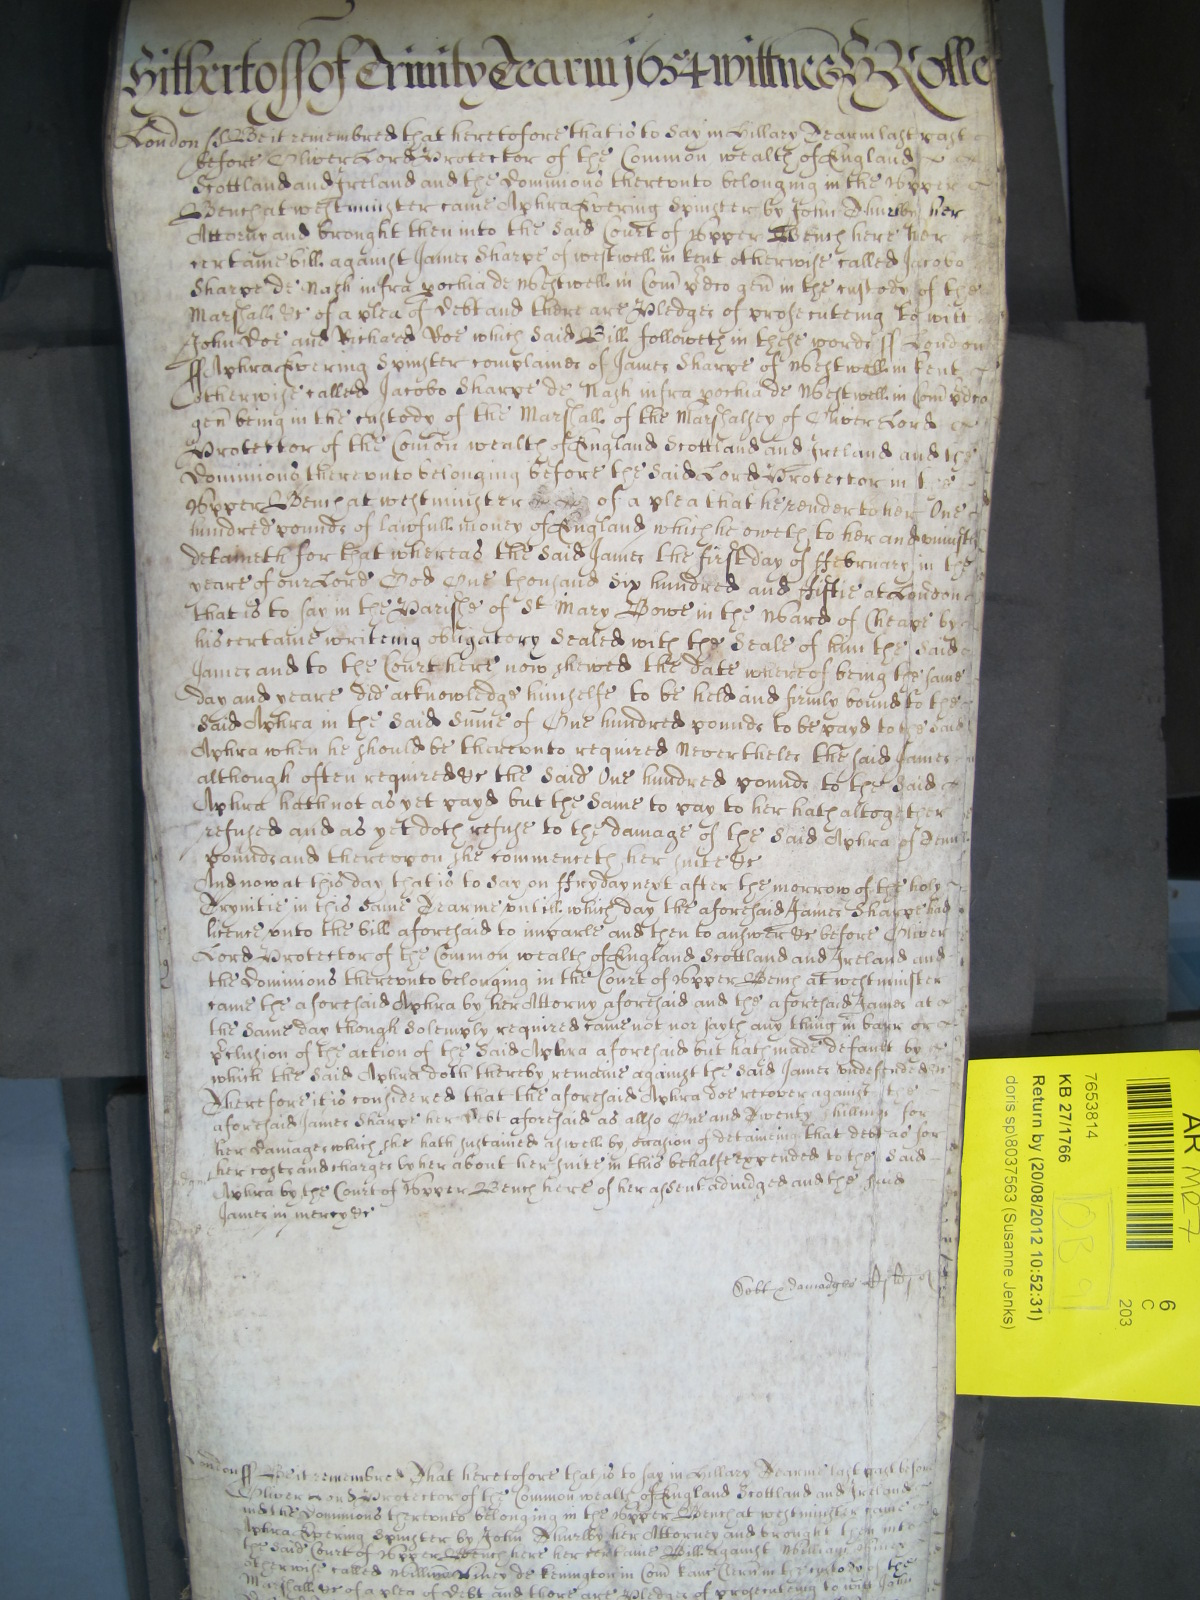 Hitherto ff of Trinity Tearm 1654 wittnes H Rolle
London ss Be it remembred that heretofore that is to say in Hillary Tearm last past
before Oliver Lord Protector of the Common wealth of England
Scottland and Ireland and the Dominions therevnto belonging in the Vpper
Bench at westminster came Aphra Evering Spinster by John Thurlby her
Attorny and brought then into the Said Court of Vpper Bench here her
certaine bill against James Sharpe of westwell in kent otherwise called Jacobo
Sharpe de Nash infra pochia de Westwell in Com pdco gen in the custody of the
Marshall &c of a plea of debt and there are Pledges of prosecuteing to witt
John Doe and Richard Roe which Said Bill followeth in these words ss London
ss Aphra Evering Spinster complaines of James Sharpe of Westwell in kent
otherwise called Jacobo Sharpe de Nash infra pochia de Westwell in Com pdco
gen being in the custody of the Marshall of the Marshalsey of Oliver Lord
Protector of the Comon wealth of England Scottland and Ireland and the
Dominions therevnto belonging before the Said Lord Protector in the
Vpper Bench at westminster of a plea that he render to her One
hundred pounds of lawfull money of England which he oweth to her and vniustly
detaineth for that whereas the Said James the first day of ffebruary in the
yeare of our Lord God One thousand Six hundred and ffiftie at London
that is to say in the Parishe of St Mary Bowe in the Ward of Cheape by
his certaine writeing obligatory Sealed with the Seale of him the Said
James and to the Court here now shewed the date whereof being the same
day and yeare did acknowledge himselfe to be held and firmly bound to the
Said Aphra in the Said Sume of One hundred pounds to be payd to the Said
Aphra when he should be therevnto required Neverthelес the said James
although often required &c the Said One hundred pounds to the Said
Aphra hath not as yet payd but the Same to pay to her hath altogether
refused and as yet doth refuse to the damage of the Said Aphra of Tenn
pounds and therevpon she commenceth her suite &c
And now at this day that is to Say on ffryday next after the morrow of the holy
Trynitie in this Same Tearme vntill which day the aforesaid James Sharpe had
licence vnto the bill aforesaid to imparle and then to answer &c before Oliver
Lord Protector of the Common wealth of England Scottland and Ireland and
the Dominions therevnto belonging in the Court of Vpper Bench at westminster
came the aforesaid Aphra by her Attorny aforesaid and the aforesaid James at
the Same day though Solemply required came not nor sayth any thing in barr or
pclusion of the action of the Said Aphra aforesaid but hath made default by
which the Said Aphra doth thereby remaine against the Said James vndefended
Therefore it is considered that the aforesaid Aphra doe recover against the
aforesaid James Sharpe her Debt aforesaid as allso One and Twenty shillings for
her damages which she hath sustained aswell by occasion of detaineing that debt as for
her costs and charges by her about her suite in this behalfe expended to the Said
Aphra by the Court of Vpper Bench here of her assent adiudged and the said
James in mercy &c
Debt & damadges
London ss Be it remembred That heretofore that is to say in Hillary Tearme last past before
Oliver Lord Protector of the Common wealth of England Scottland and Ireland
and the Dominions therevnto belonging in the Vpper Bench at westminster came
Aphra Evering Spinster by John Thurlby her Attorney and brought then into
the Said Court of Vpper Bench here her certaine Bill against William
otherwise called Willm de Kenington in Com kanc in the custody of the
Marshall &c of a plea of Debt and there are Pledges of prosecuteing to witt John
AR MR 7
6
C
203
7653814
KB 27/1766
Return by (20/08/2012 10:52:31)
doris sp\8037563 (Susanne Jenks)